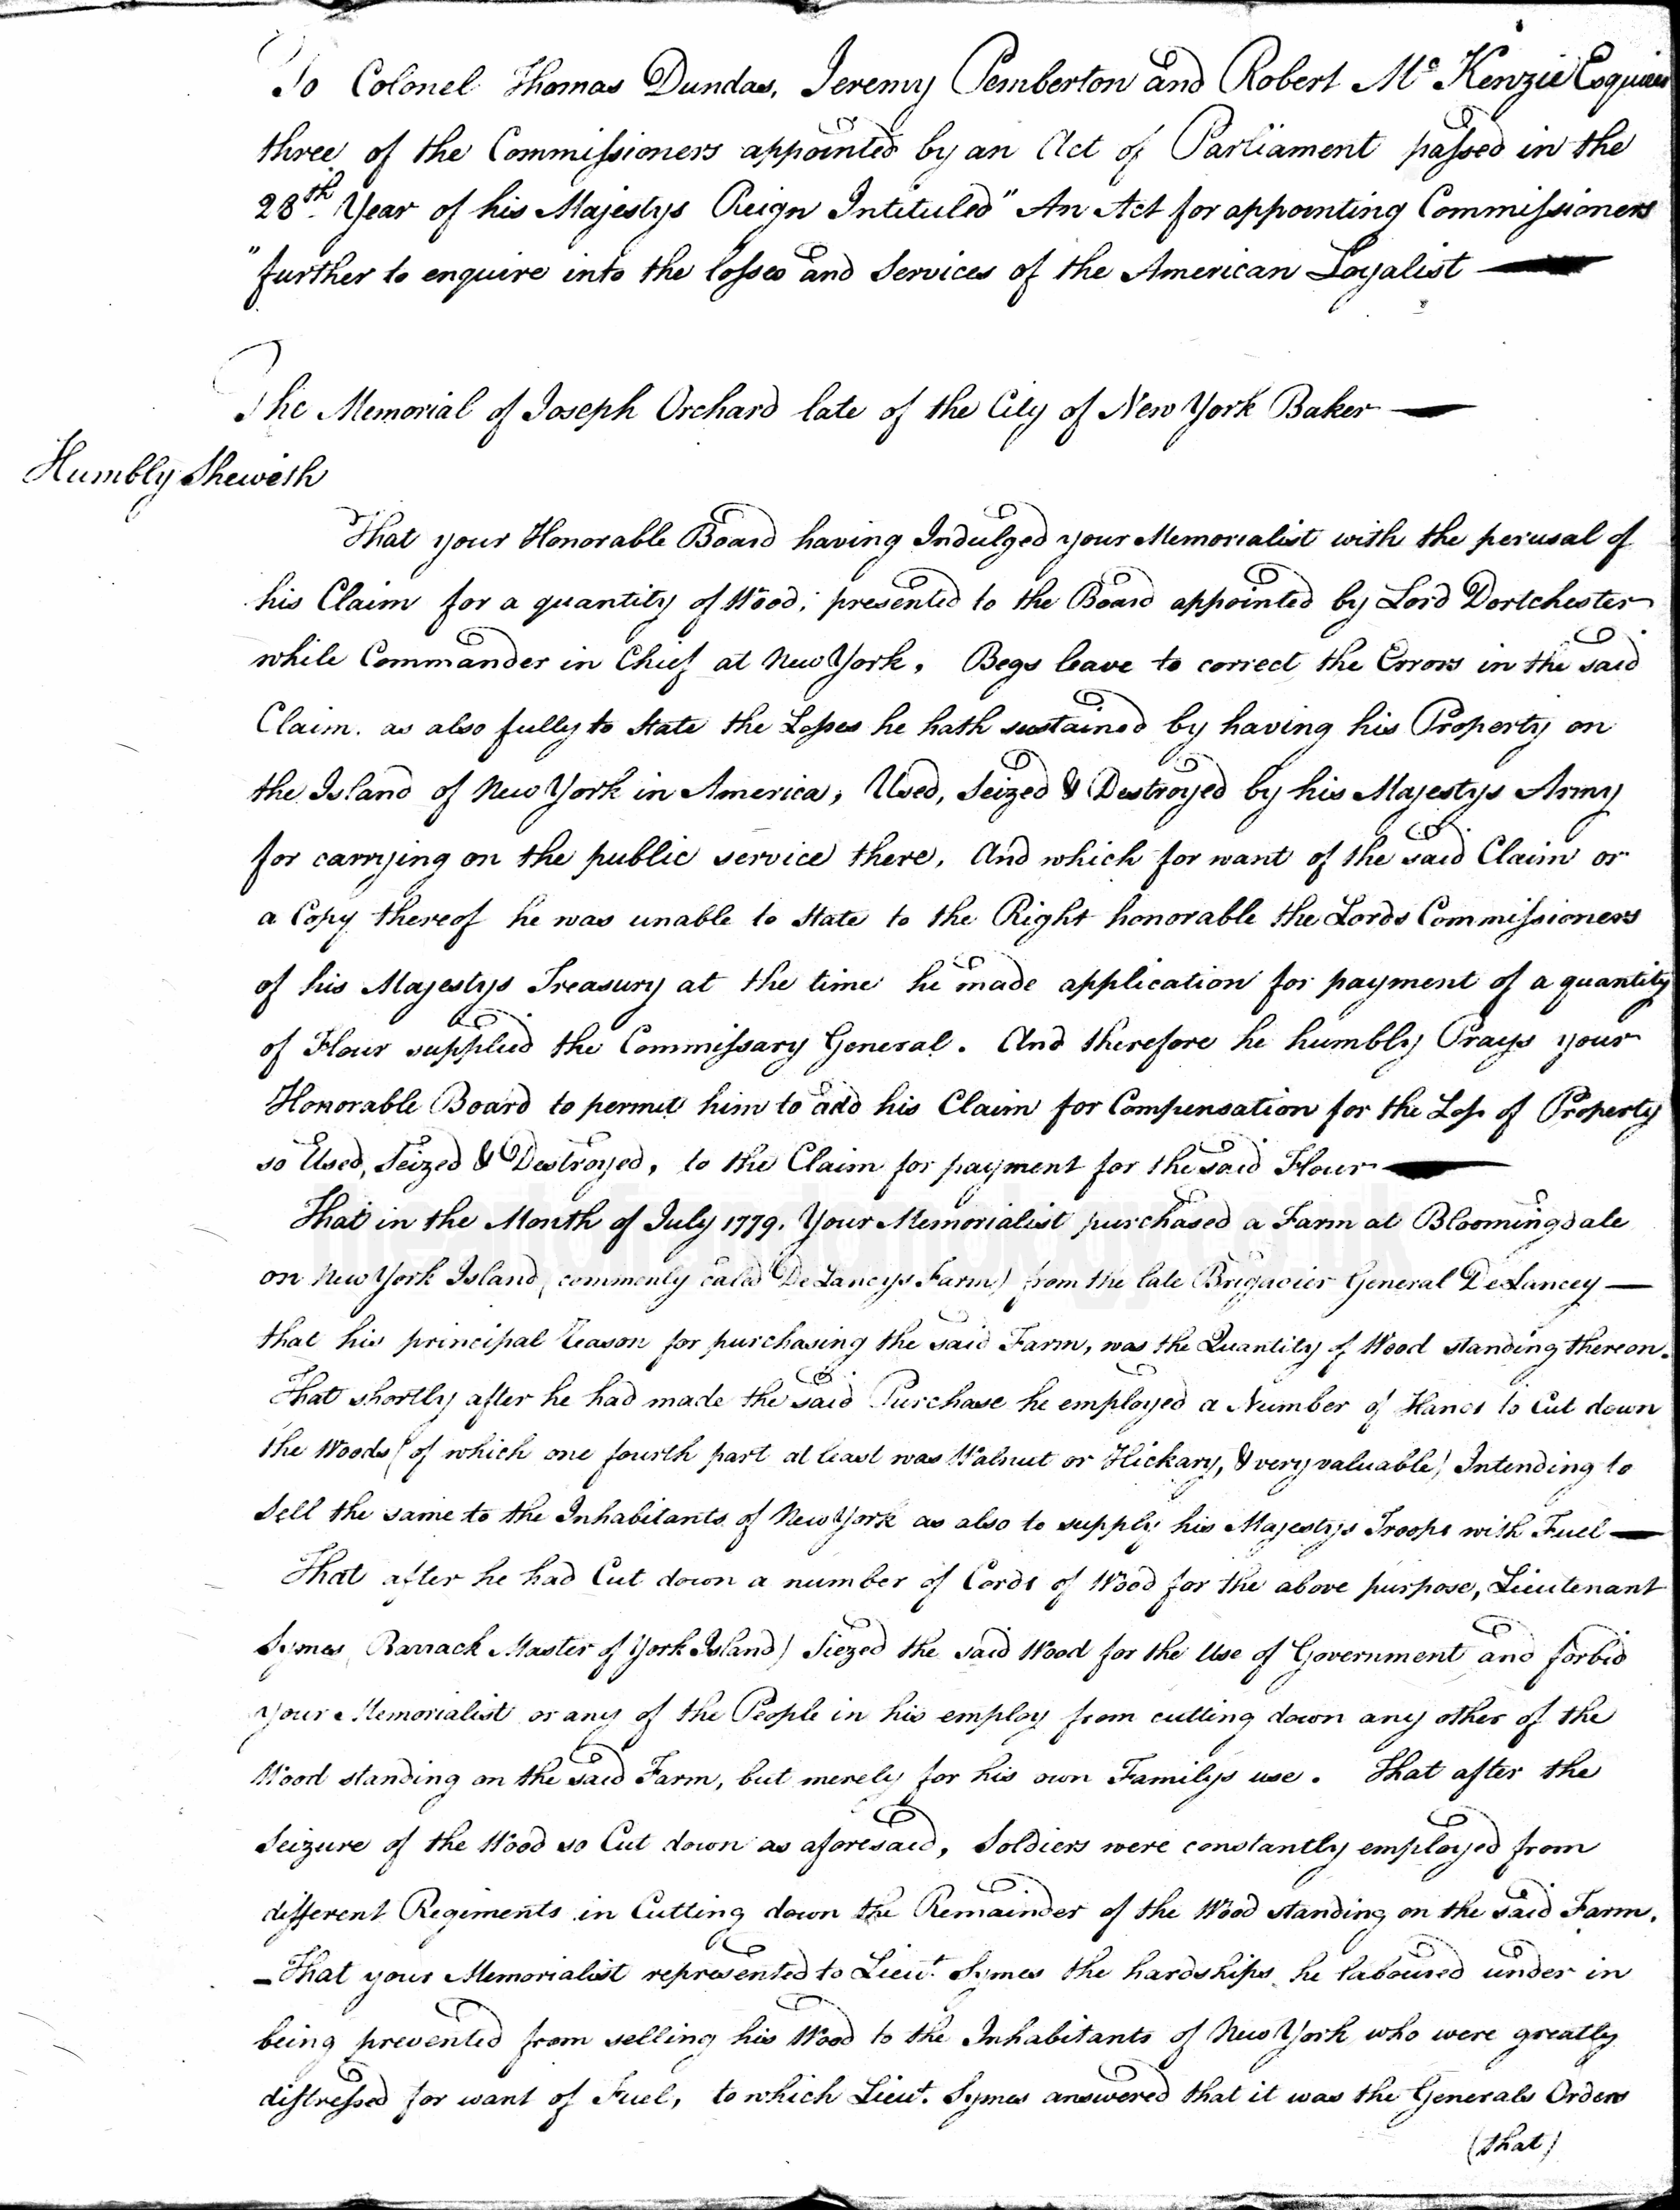 To Colonel Thomas Dundas, Jeremy Pemberton and Robert Mc Kenzie Esquires
three of the Commissioners appointed by an Act of Parliament passed in the
28th Year of his Majestys Reign Intituled "An Act for appointing Commissioners
"further to enquire into the losses and Services of the American Loyalist
The Memorial of Joseph Orchard late of the City of New York Baker
Humbly Sheweth
That your Honorable Board having Indulged your Memorialist with the perusal of
his Claim for a quantity of Wood; presented to the Board appointed by Lord Dortchester
while Commander in Chief at New York, Begs leave to correct the Errors in the said
Claim. as also fully to State the Losses he hath sustained by having his Property on
the Island of New York in America, Used, Seized & Destroyed by his Majestys Army
for carrying on the public service there, And which for want of the said Claim or
a Copy thereof he was unable to State to the Right honorable the Lords Commissioners
of his Majestys Treasury at the time he made application for payment of a quantity
of Flour supplied the Commissary General. And therefore he humbly Prays your
Honorable Board to permit him to add his Claim for Compensation for the Loss of Property
so Used, Seized & Destroyed, to the Claim for payment for the said Flour
That in the Month of July 1779, Your Memorialist purchased a Farm at Bloomingdale
on New York Island, (commonly caled DeLanceys Farm) from the late Brigadier General DeLancey —
that his principal Reason for purchasing the said Farm, was the Quantity of Wood standing thereon.
That shortly after he had made the said Purchase he employed a Number of Hands to Cut down
the Woods (of which one fourth part at least was Walnut or Hickary, & very valuable) Intending to
Sell the same to the Inhabitants of New York as also to supply his Majestys Troops with Fuel —
That after he had Cut down a number of Cords of Wood for the above purpose, Lieutenant
Symes (Barrack Master of York Island) Siezed the said Wood for the Use of Government and forbid
your Memorialist or any of the People in his employ from cutting down any other of the
Wood standing on the said Farm, but merely for his own Familys use. That after the
Seizure of the Wood so Cut down as aforesaid, Soldiers were constantly employed from
different Regiments in Cutting down the Remainder of the Wood standing on the said Farm.
—That your Memorialist represented to Lieut. Symes the hardships he laboured under in
being prevented from selling his Wood to the Inhabitants of New York who were greatly
distressed for want of Fuel, to which Lieut. Symes answered that it was the Generals Orders
(that)